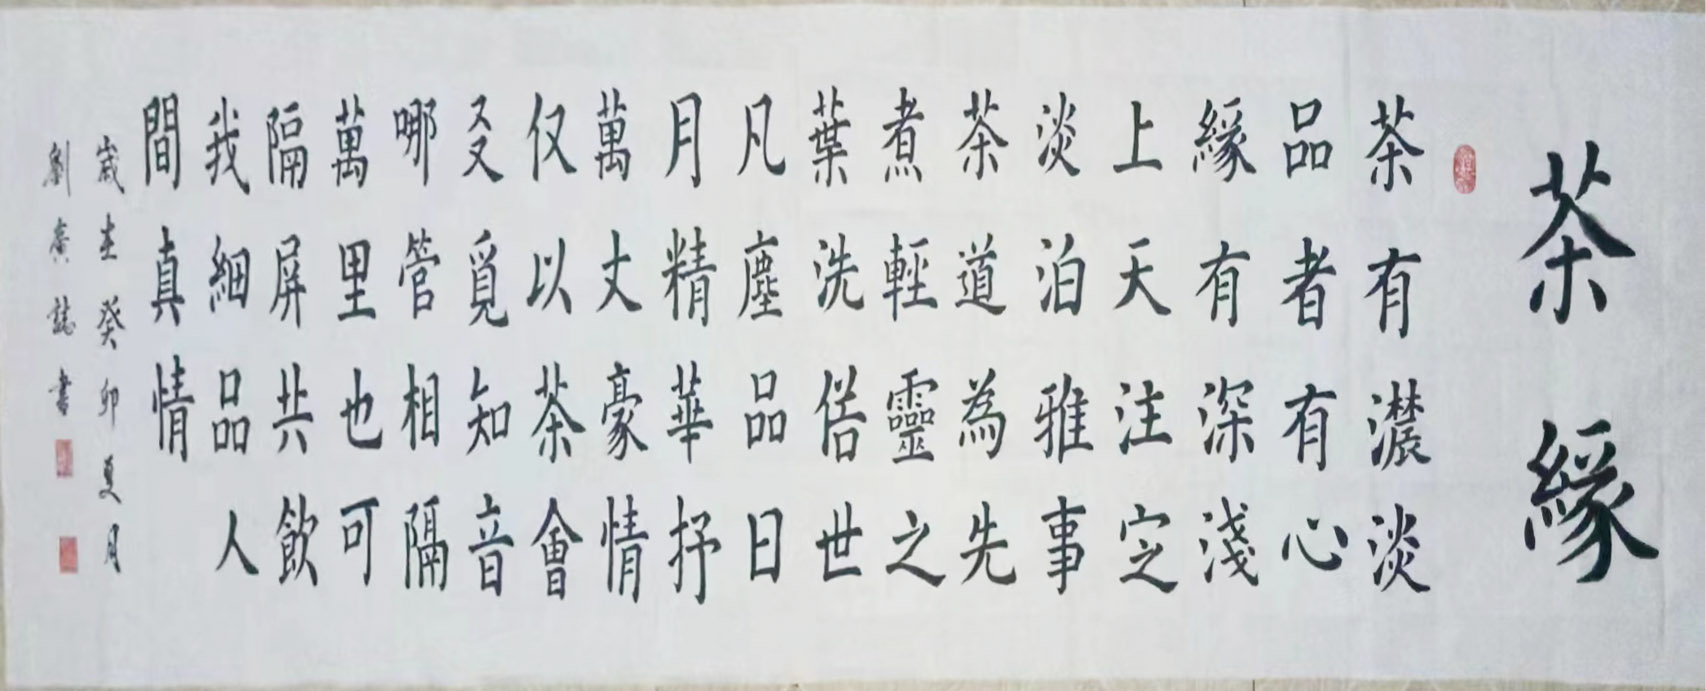 茶緣
茶有濃淡
品者有心
緣有深淺
上天注定
淡泊雅事
茶道為先
煮輕靈之
葉洗俗世
凡塵品日
月精華抒
萬丈豪情
仅以茶會
友覓知音
哪管相隔
萬里也可
隔屏共飲
我細品人
間真情
歲在癸卯夏月
劉廣誌書